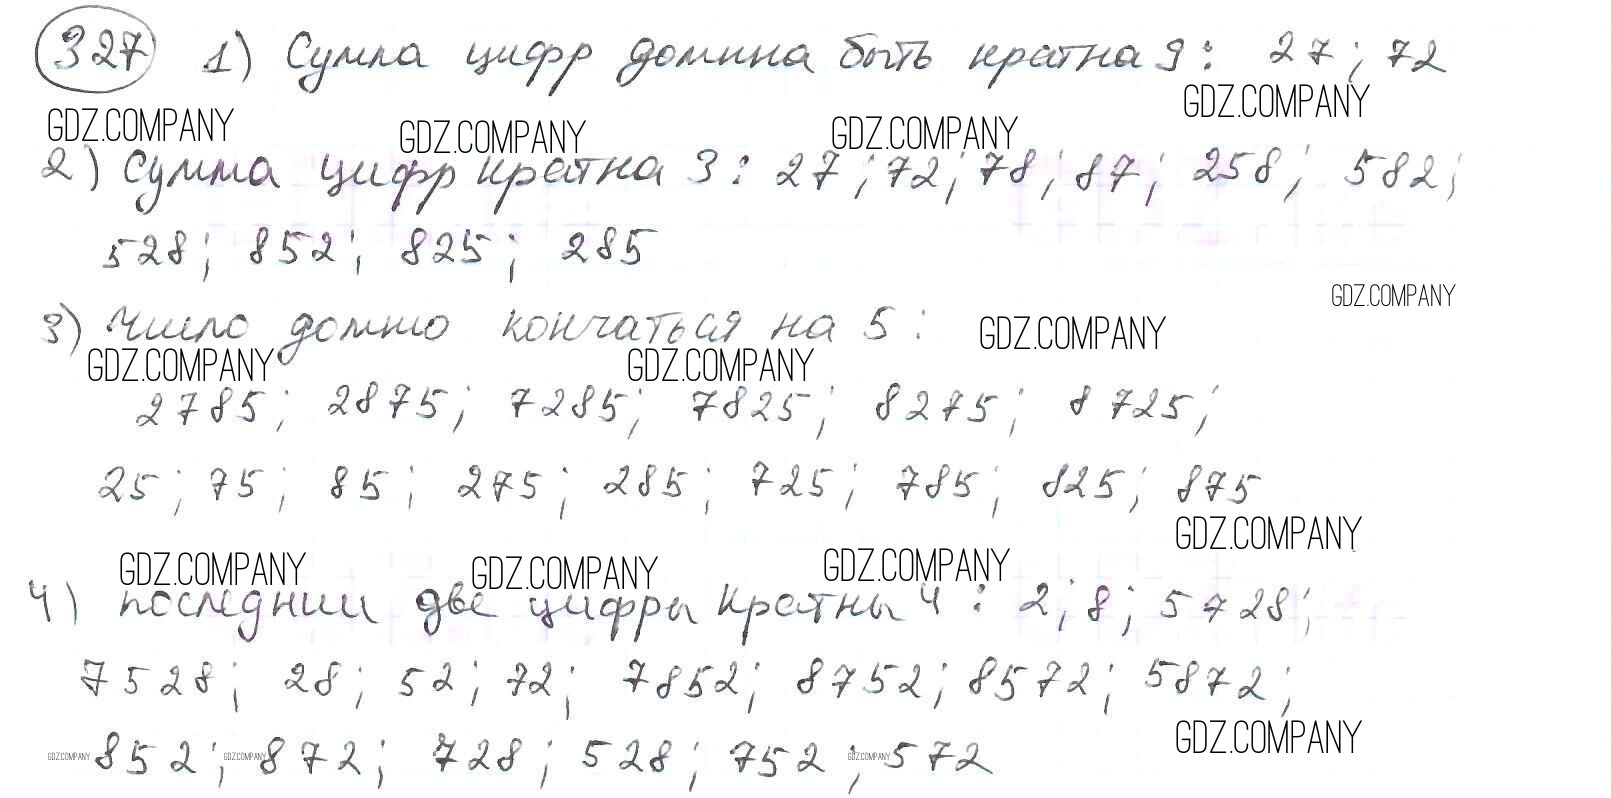 327 1) Сумма цифр должна быть кратна 9: 27; 72
GDZ.COMPANY GDZ.COMPANY GDZ.COMPANY GDZ.COMPANY
2) Сумма цифр кратна 3: 27; 72; 78; 87; 258; 582;
528; 852; 825; 285
GDZ.COMPANY
3) Число должно кончаться на 5:
GDZ.COMPANY GDZ.COMPANY GDZ.COMPANY
2785; 2875; 7285; 7825; 8275; 8725;
25; 75; 85; 275; 285; 725; 785; 825; 875
GDZ.COMPANY
GDZ.COMPANY GDZ.COMPANY GDZ.COMPANY
4) последнии две цифры кратны 4: 2; 8; 5728;
7528; 28; 52; 72; 7852; 8752; 8572; 5872;
GDZ.COMPANY
GDZ.COMPANY 852; GDZ.COMPANY 872; 728; 528; 752; GDZ.COMPANY 572